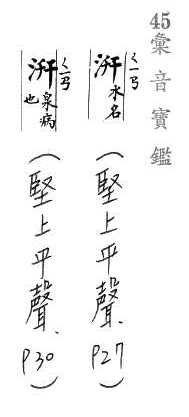 45彙音寶鑑
汧ㄑㄧㄢ水名(堅上平聲、P27)
汧ㄑㄧㄢ泉病也(堅上平聲、P30)